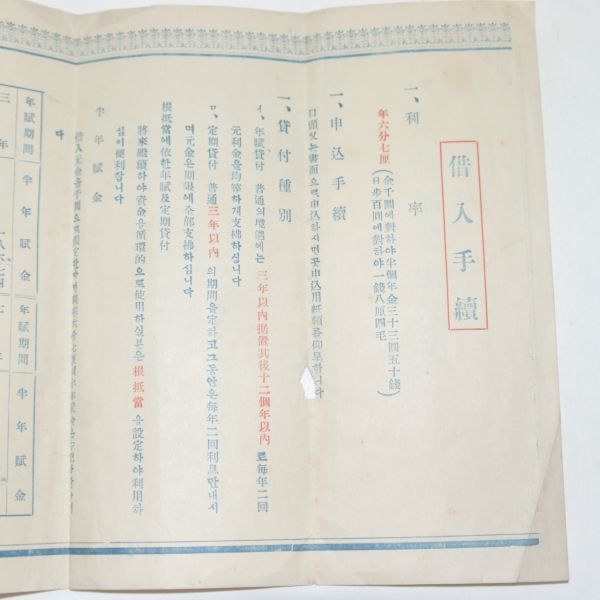 借入手續
一、利率
年六分七厘(金千圓에對하야半個年金三十三圓五十錢
(日步百圓에對하야一錢八厘四毛)
一、申込手續
口頭又는書面으로申込하시면곳申込用紙類를仰呈합니다
一、貸付種別
イ、年賦貸付 普通의境遇에는 三年以內据置其後十二個年以內 로每年二回
元利金을均等하게支拂하십니다
ロ、定期貸付 普通三年以內 의期間을定하고그동안은每年二回利息만내시
며元金은期限에全部支拂하십니다
根抵當에依한年賦及定期貸付
將來繼續하야資金을循環的으로使用하실분은 根抵當 을設定하야利用하
심이便利합니다
半年賦金
借入元金을千圓으로
다
年賦期間 半年賦金 年賦期間 半年賦金
三年